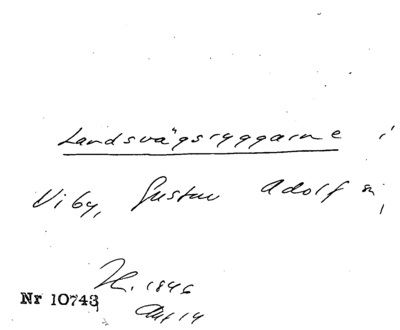 Landsvägsryggarne i
Viby, Gustav Adolf sn,
H. 1846
Nr 10743
14